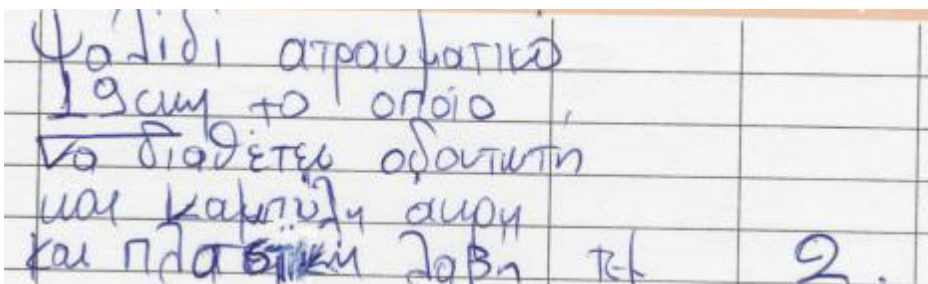 Ψαλίδι ατραυματικό
19cm το οποίο
να διαθέτει οδοντωτη
και καμπύλη ακρη
και πλαστικη λαβη τεμ 2.